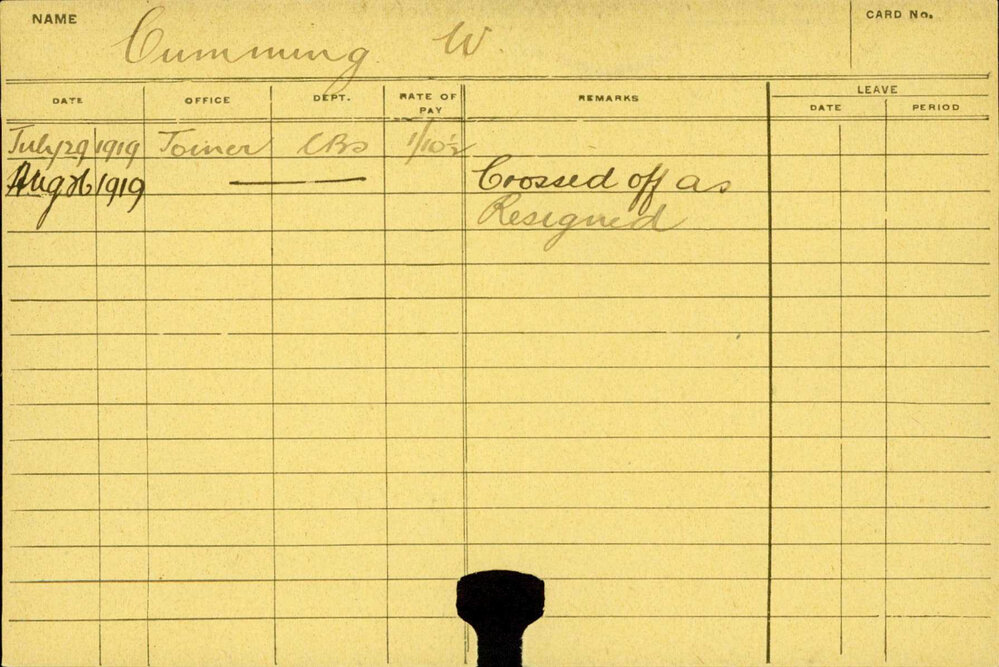 NAME Cumming W. CARD No.
DATE OFFICE DEPT. RATE OF PAY REMARKS LEAVE
DATE PERIOD
July 29 1919 Joiner CBs 1/10½
Aug 1919 Crossed off as
Resigned